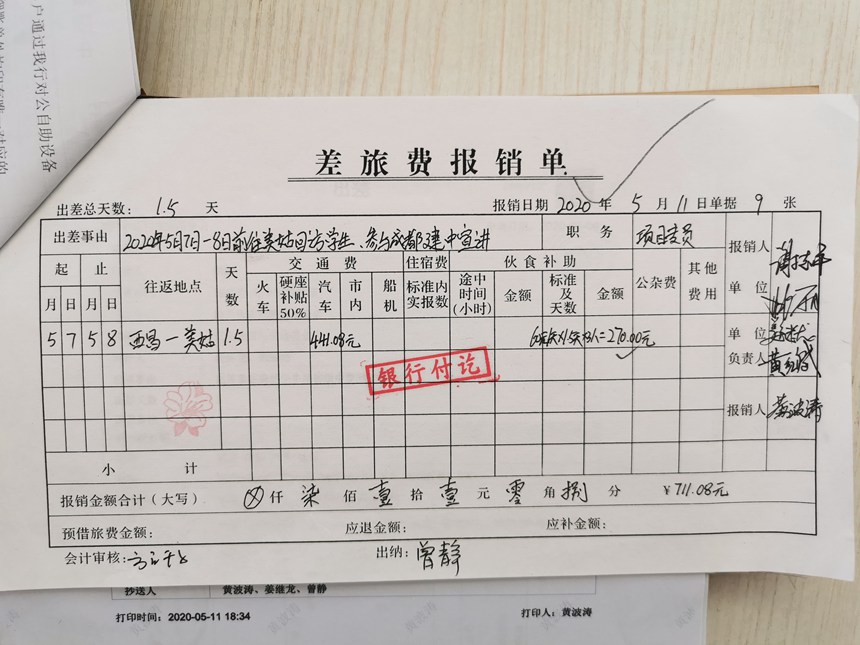 户通过我行对公自助设备
差旅费报销单
出差总天数： 1.5 天 报销日期 2020 年 5 月 11 日 单据 9 张
出差事由 2020年5月7日-8日前往美姑回访学生、参与成都建中宣讲 职务 项目专员 报销人
起 止 往返地点 天数 交通费 住宿费 伙食补助 公杂费 其他费用 单位
月 日 月 日 火车 硬座补贴50% 汽车 市内 船机 标准内实报数 途中时间(小时) 金额 标准及天数 金额
5 7 5 8 西昌-美姑 1.5 441.08元 =270.00元 单位负责人
银行付讫
报销人 黄波涛
小计
报销金额合计（大写） ⊗ 仟 柒 佰 壹 拾 壹 元 零 角 捌 分 ￥711.08元
预借旅费金额： 应退金额： 应补金额：
会计审核： 出纳： 曾静
抄送人 黄波涛、姜继龙、曾静
打印时间： 2020-05-11 18:34 打印人： 黄波涛